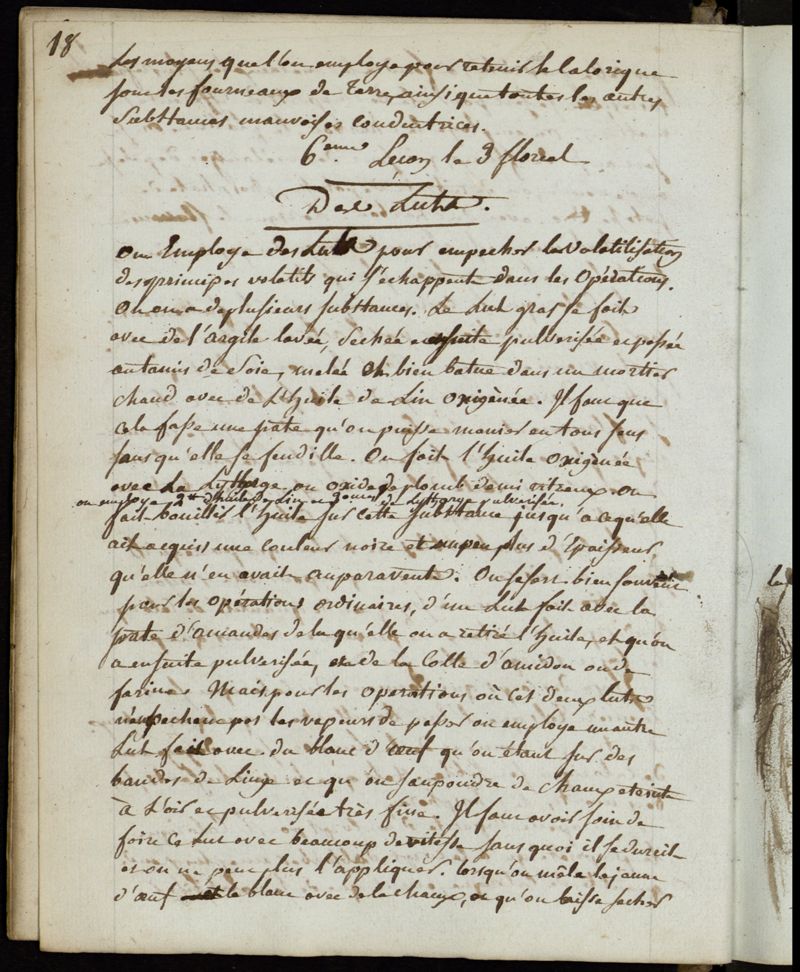 18
Les moyens que l'on employe pour retenir le Calorique
sont les fourneaux de Terre, ainsi que toutes les autres
Substances mauvaises conductrices.
6eme Leçon le 3 floreal
Des Luts.
On Employe des Luts pour empecher la volatilisation
des principes volatils qui s'échappent dans les Opérations.
On en a de plusieurs substances. Le Lut gras se fait
avec de l'argile lavée, sechée ensuite pulverisée et passée
au tamis de Soie, melée et bien batue dans un mortier
chaud avec de L'huile de Lin oxigènée. Il faut que
cela fasse une pate qu'on puisse manier en tous sens
sans qu'elle se fendille. On fait l'huile oxigènée
avec La Lytharge ou oxide de plomb demi vitreux. on
on employe 2 d'huile de Lin et 3 onces de Lytharge pulverisée.
fait bouillir l'huile sur cette substance jusqu'a ce qu'elle
ait acquis une couleur noire et un peu plus d'épaisseur
qu'elle n'en avait auparavent. On se sert bien souvent
pour les opérations ordinaires, d'un Lut fait avec la
pate d'amandes de laqu'elle on a retiré l'huile, et qu'on
a ensuite pulverisée, et de la Colle d'amidon ou de
farine. Mais pour les operations où ces deux luts
n'empechent pas les vapeurs de passer on employe un autre
Lut fait avec du blanc d'œuf qu'on étant sur des
bandes de Linge et qu'on saupoudre de chaux eteinte
à L'air et pulverisée très fine. Il faut avoir soin de
faire ce Lut avec beaucoup de vitesse sans quoi il se durcit
et on ne peut plus l'appliquer. lorsqu'on mêle le jaune
d'œuf et le blanc avec de la chaux, et qu'on laisse secher